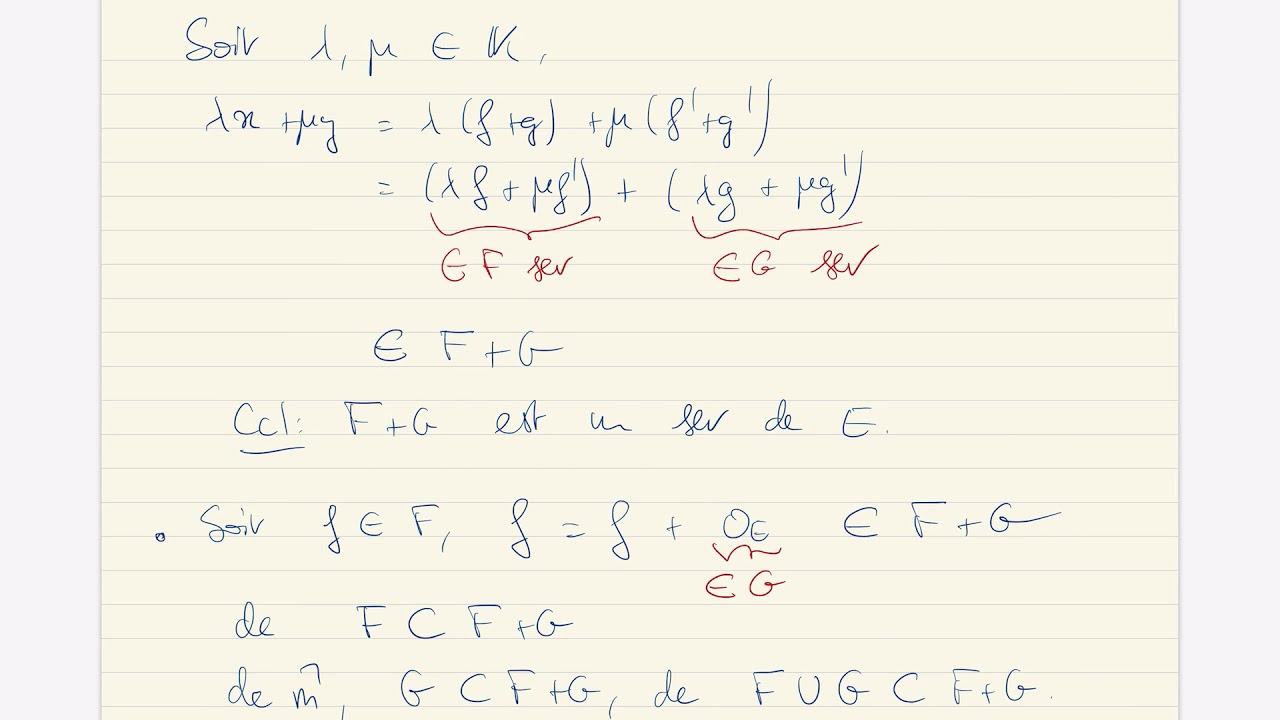 Soit λ, μ ∈ 𝕂,
λx + μy = λ(f+g) + μ(f'+g')
= (λf + μf') + (λg + μg')
∈ F sev ∈ G sev
∈ F+G
Ccl: F+G est un sev de E.
• Soit f ∈ F, f = f + 0_E ∈ F+G
∈ G
dc F ⊂ F+G
de m̂, G ⊂ F+G, dc F ∪ G ⊂ F+G.